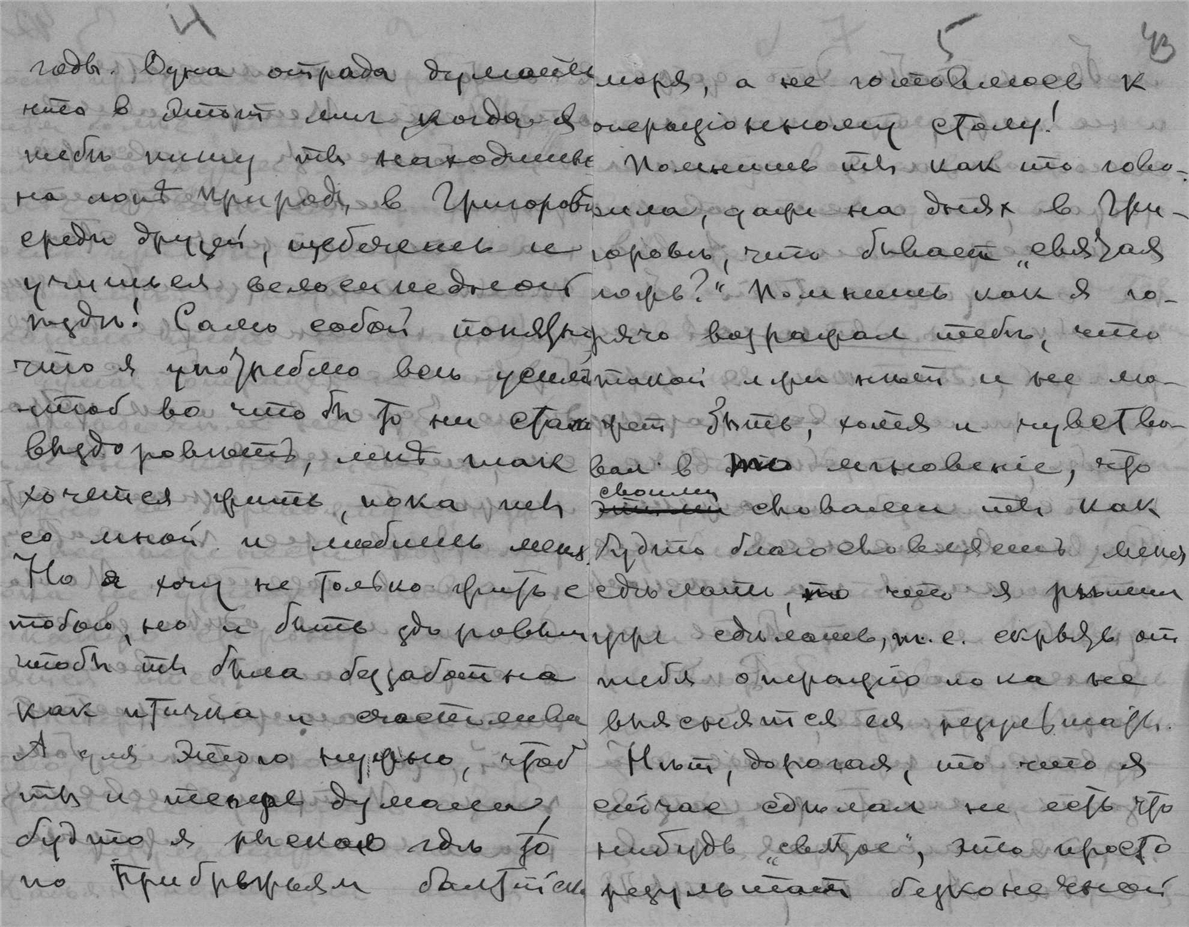 4
годы. Одна отрада думать
что в этот миг, когда я
тебѣ пишу ты находишься
на лонѣ природы, в Григоров
среди друзей, щебечешь и
учишься велосипедной
ѣзды! Само собой понятно
что я употреблю всѣ усилія
чтоб во что бы то ни стало
выздоровѣть, мнѣ так
хочется жить, пока ты
со мной и любишь меня.
Но я хочу не только жить с
тобою, но и быть здоровым
чтобы ты была беззаботна
как птичка и счастлива
А для этого нужно, чтоб
ты и теперь думала,
будто я рыскаю гдѣ то
по Прибрежьям балтійск
5
43
моря, а не готовлюсь к
операціонному столу!
Помнишь ты как то гово-
рила, даже на днях в Гри-
горовѣ, что бывает „святая
ложь?“ Помнишь как я го-
рячо возражал тебѣ, что
такой лжи нѣт и не мо-
жет быть, хотя и чувство-
вал в то мгновеніе, что
своими
словами ты как
будто благословляешь меня
сдѣлать то что я рѣшил
уже сдѣлать, т.е. скрыть от
тебя операцію пока не
выяснятся ея результаты.
Нѣт, дорогая, то что я
сейчас сдѣлал не есть что
нибудь „святое“, это просто
результат безконечной